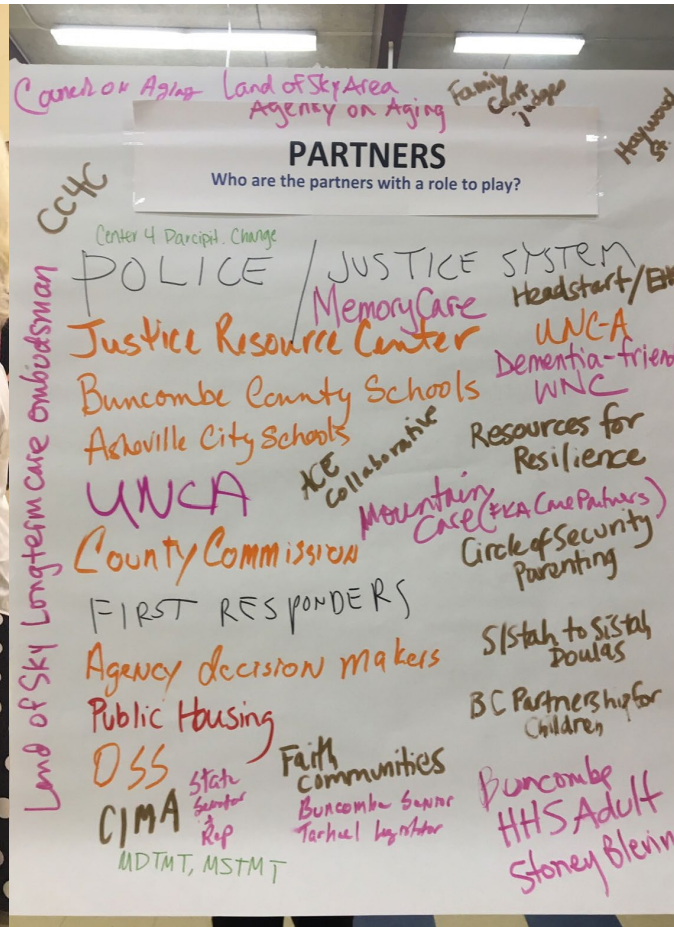 Council on Aging Land of Sky Area
Agency on Aging
Family
Court
Judges
Haywood
St.
PARTNERS
Who are the partners with a role to play?
CC4C
Center 4 Change
POLICE / JUSTICE SYSTEM
Headstart/
Memory Care
Justice Resource Center
UNC-A
Dementia-frien
WNC
Buncombe County Schools
Asheville City Schools
ACE
Collaborative
Resources for
Resilience
UNCA
Mountain
Care (FKA Care Partners)
County Commission
Circle of Security
Parenting
FIRST RESPONDERS
Sistah to Sistah
Doulas
Agency decision makers
Public Housing
BC Partnership for
Children
DSS
Faith
communities
State
Senator
&
Rep
Buncombe Senior
Tarheel legislator
Buncombe
HHS Adult
Stoney Blevin
CIMA
MDTMT, MSTMT
Land of Sky Longterm care ombudsman